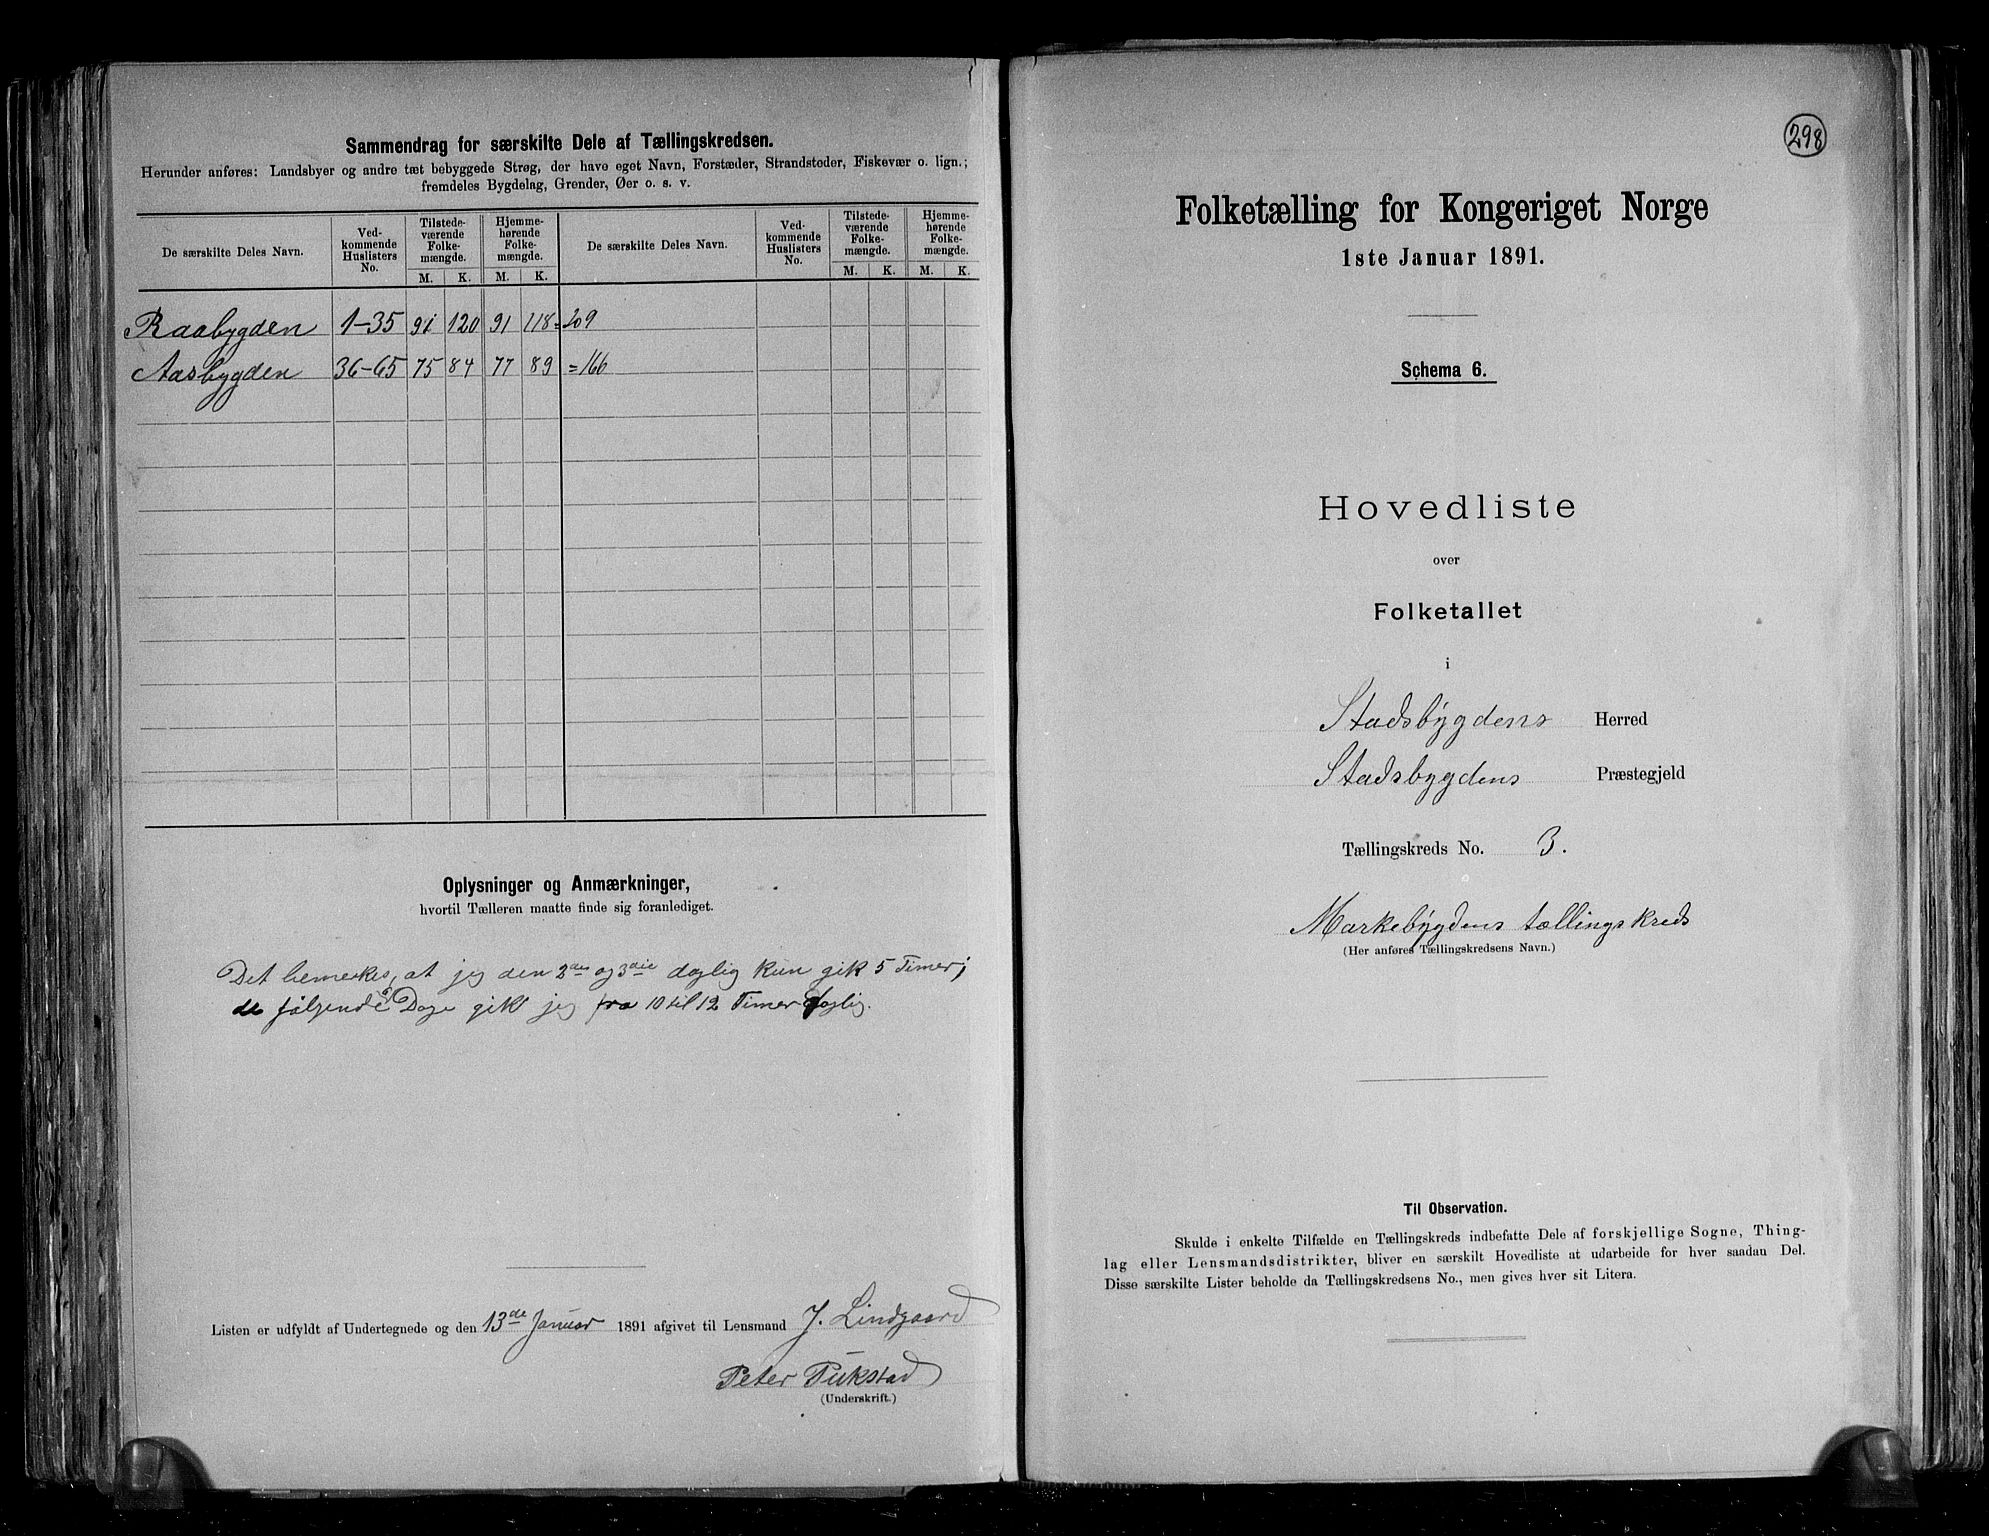 Sammendrag for særskilte Dele af Tællingskredsen.
Herunder anføres: Landsbyer og andre tæt bebyggede Strøg, der have eget Navn, Forstæder, Strandsteder, Fiskevær o. lign.;
fremdeles Bygdelag, Grender, Øer o. s. v.
De særskilte Deles Navn. Ved-kommende Huslisters No. Tilstede-værende Folke-mængde. Hjemme-hørende Folke-mængde. De særskilte Deles Navn. Ved-kommende Huslisters No. Tilstede-værende Folke-mængde. Hjemme-hørende Folke-mængde.
M. K. M. K. M. K. M. K.
Raabygden 1-35 91 120 91 118 = 209
Aasbygden 36-65 75 84 77 89 = 166
Oplysninger og Anmærkninger,
hvortil Tælleren maatte finde sig foranlediget.
Det bemerkes, at jeg den 2den og 3die daglig kun gik 5 Timer;
de følgende Dage gik jeg fra 10 til 12 Timer daglig.
Listen er udfyldt af Undertegnede og den 13de Januar 1891 afgivet til Lensmand J. Lindgaard
Peter Pukstad
(Underskrift.)
298
Folketælling for Kongeriget Norge
1ste Januar 1891.
Schema 6.
Hovedliste
over
Folketallet
i
Stadsbygdens Herred
Stadsbygdens Præstegjeld
Tællingskreds No. 3.
Markebygdens tællingskreds
(Her anføres Tællingskredsens Navn.)
Til Observation.
Skulde i enkelte Tilfælde en Tællingskreds indbefatte Dele af forskjellige Sogne, Thing-
lag eller Lensmandsdistrikter, bliver en særskilt Hovedliste at udarbeide for hver saadan Del.
Disse særskilte Lister beholde da Tællingskredsens No., men gives hver sit Litera.